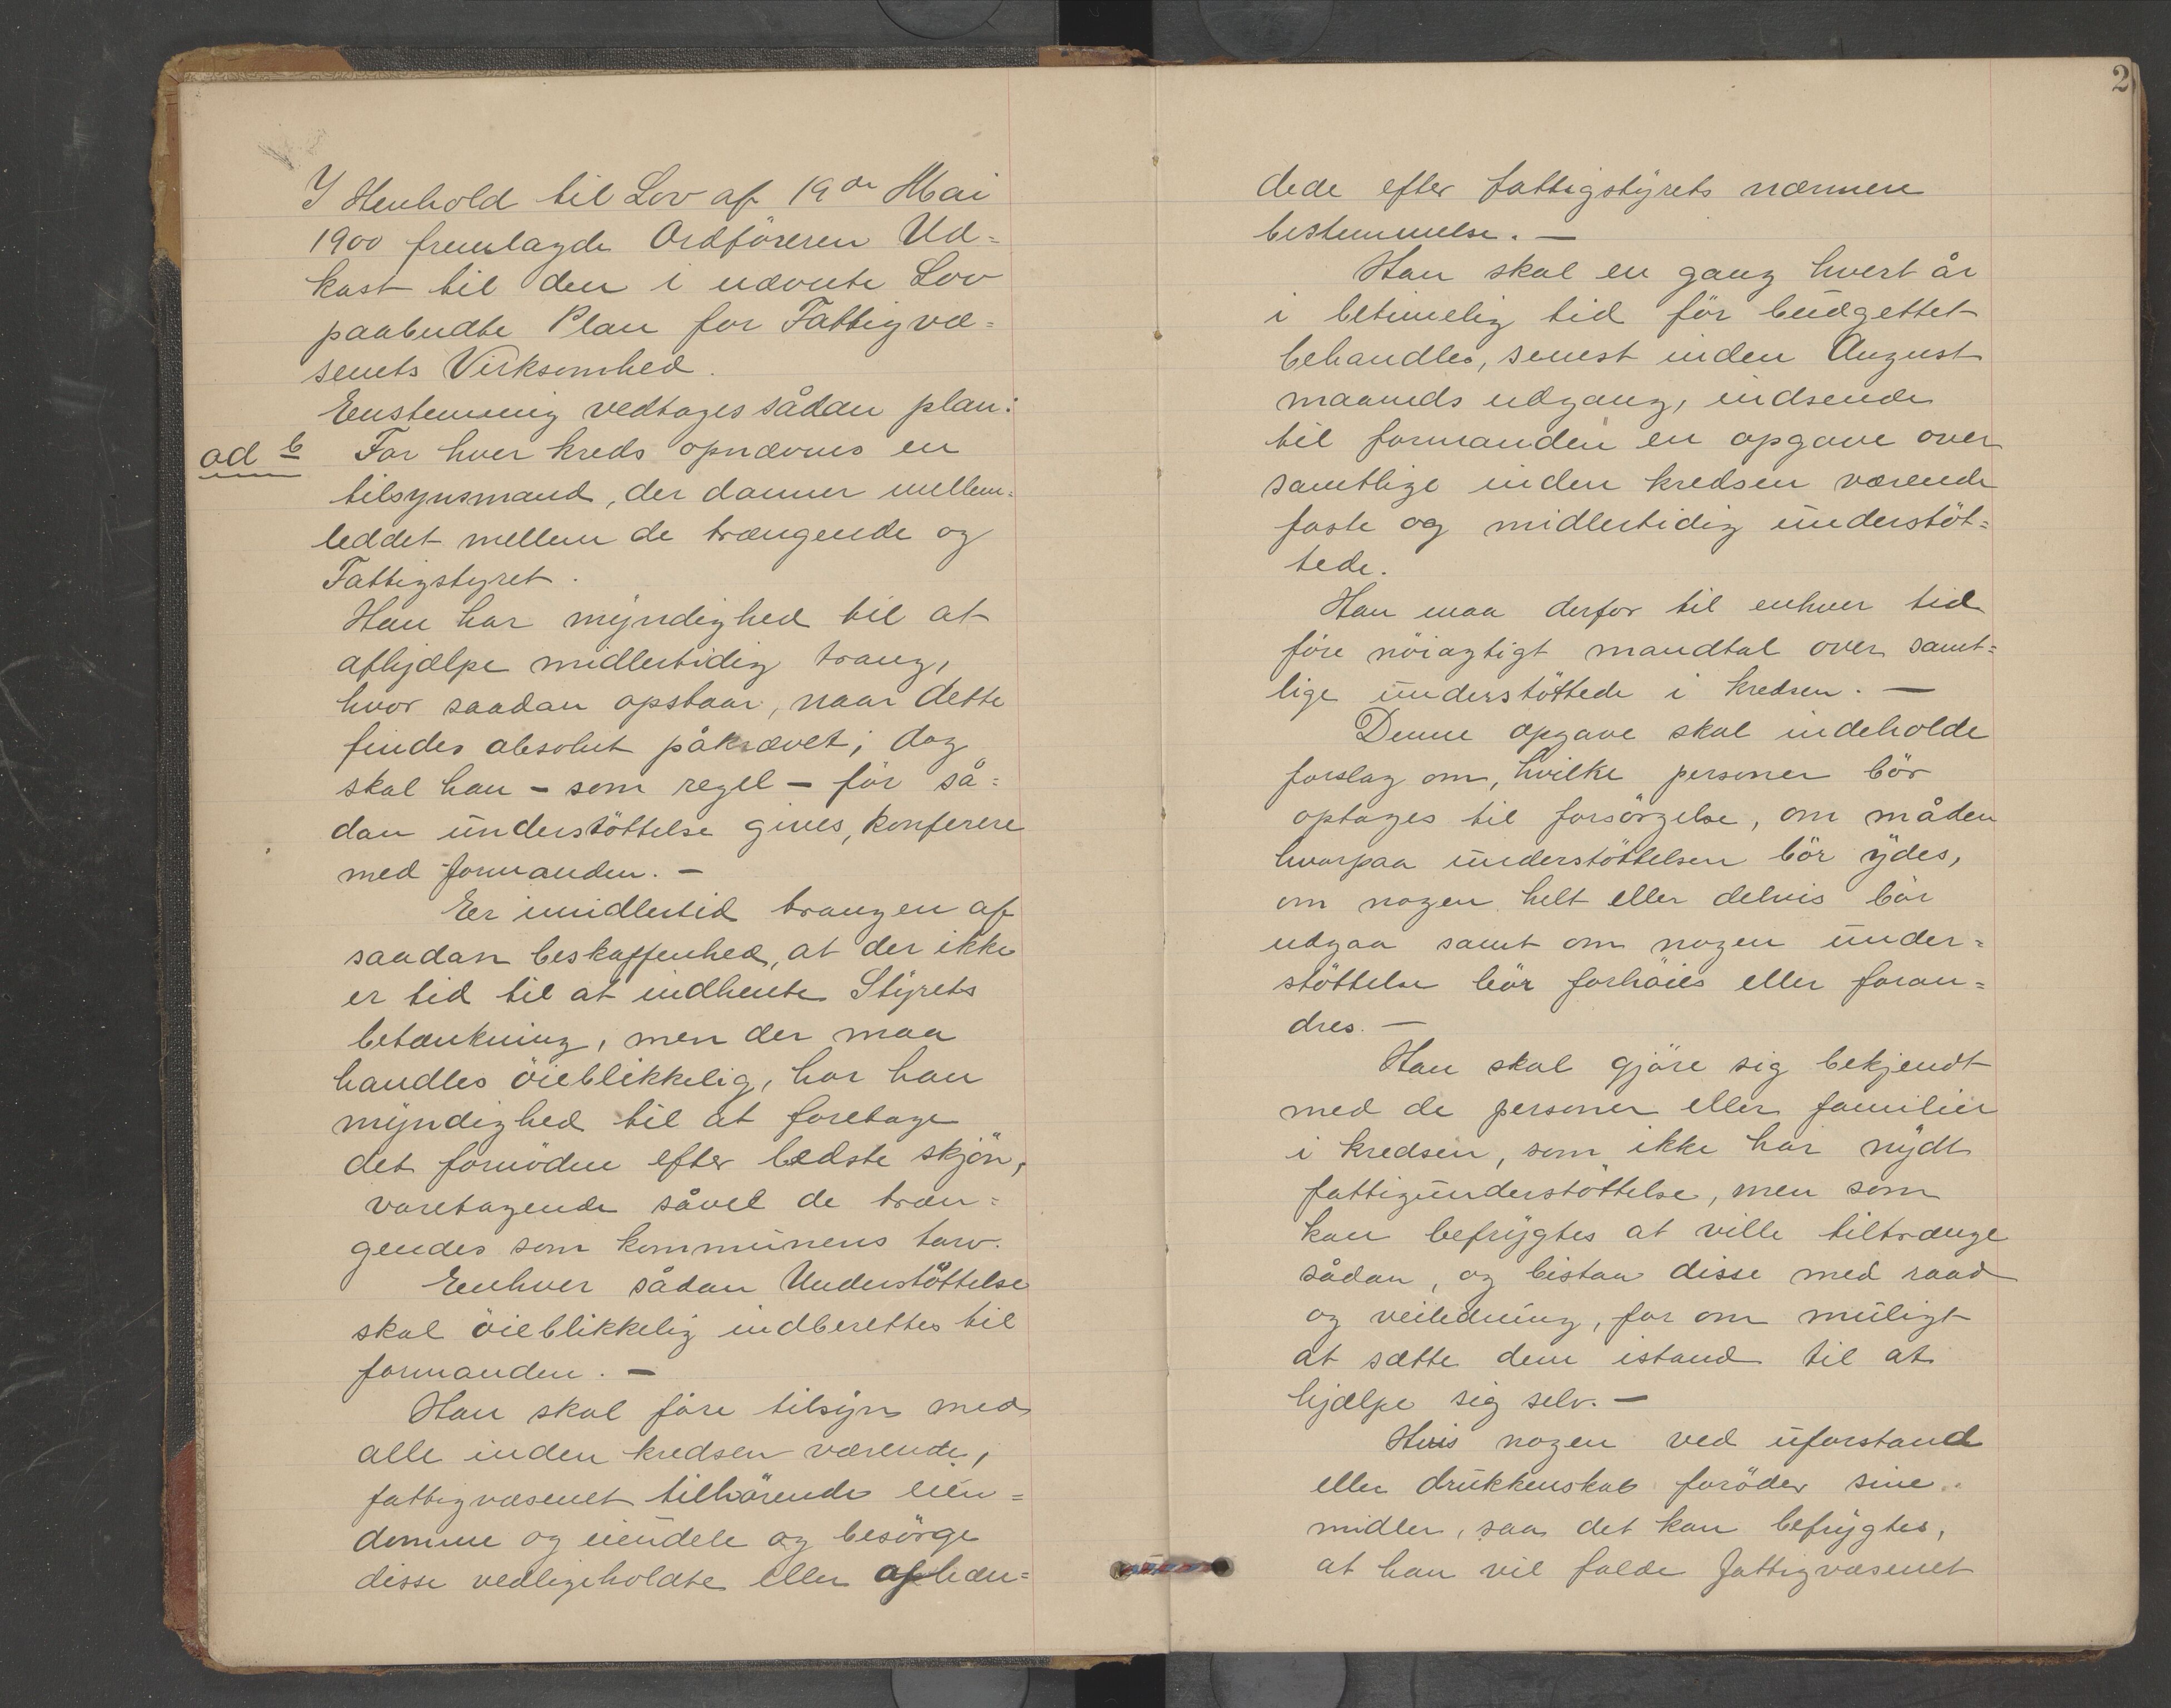 I Henhold til Lov af 19de Mai
1900 fremlagde Ordföreren Ud=
kast til den i nævnte Lov
paabudte Plan for Fattigvæ=
senets Virksomhed.
Eenstemmig vedtoges sådan plan:
ad b For hver kreds opnævnes en
tilsynsmand, der danner mellem=
leddet mellem de trængende og
Fattigstyret.
Han har myndighed til at
afhjælpe midlertidig trang,
hvor saadan opstaar, naar dette
findes absolut påkrævet; dog
skal han – som regel – før så=
dan understöttelse gives, konferere
med formanden. –
Eer imidlertid trangen af
saadan beskaffenhed, at der ikke
er tid til at indhente Styrets
betænkning, men der maa
handles öieblikkelig, har han
myndighed til at foretage
det fornödne efter bedste skjön,
varetagende såvel de træn=
gendes som kommunens tarv.
Eenhver sådan Understöttelse
skal öieblikkelig indberettes til
formanden. –
Han skal före tilsyn med
alle inden kredsen værende,
fattigvæsenet tilhörende eien=
domme og eiendele og besörge
disse vedligeholdte eller afhæn=
2
dede efter fattigstyrets nærmere
bestemmelse. –
Han skal en gang hvert år
i betimelig tid för budgettet
behandles, senest inden August
maaneds udgang, indsende
til formanden en opgave over
samtlige inden kredsen værende
faste og midlertidig understöt=
tede.
Han maa derfor til enhver tid
före nöiagtigt mandtal over samt=
lige understöttede i kredsen. –
Denne opgave skal indeholde
forslag om, hvilke personer bör
optages til forsörgelse, om måden
hvorpaa understöttelsen bör ydes,
om nogen helt eller delvis bör
udgaa samt om nogen under=
stöttelse bör forhöies eller foran=
dres. –
Han skal gjöre sig bekjendt
med de personer eller familier
i kredsen, som ikke har nydt
fattigunderstöttelse, men som
kan befrygtes at ville tiltrænge
sådan, og bistaa disse med raad
og veiledning, for om muligt
at sætte dem istand til at
hjælpe sig selv. –
Hvis nogen ved uforstand
eller drukkenskab foröder sine
midler, saa det kan befrygtes,
at han vil falde fattigvæsenet